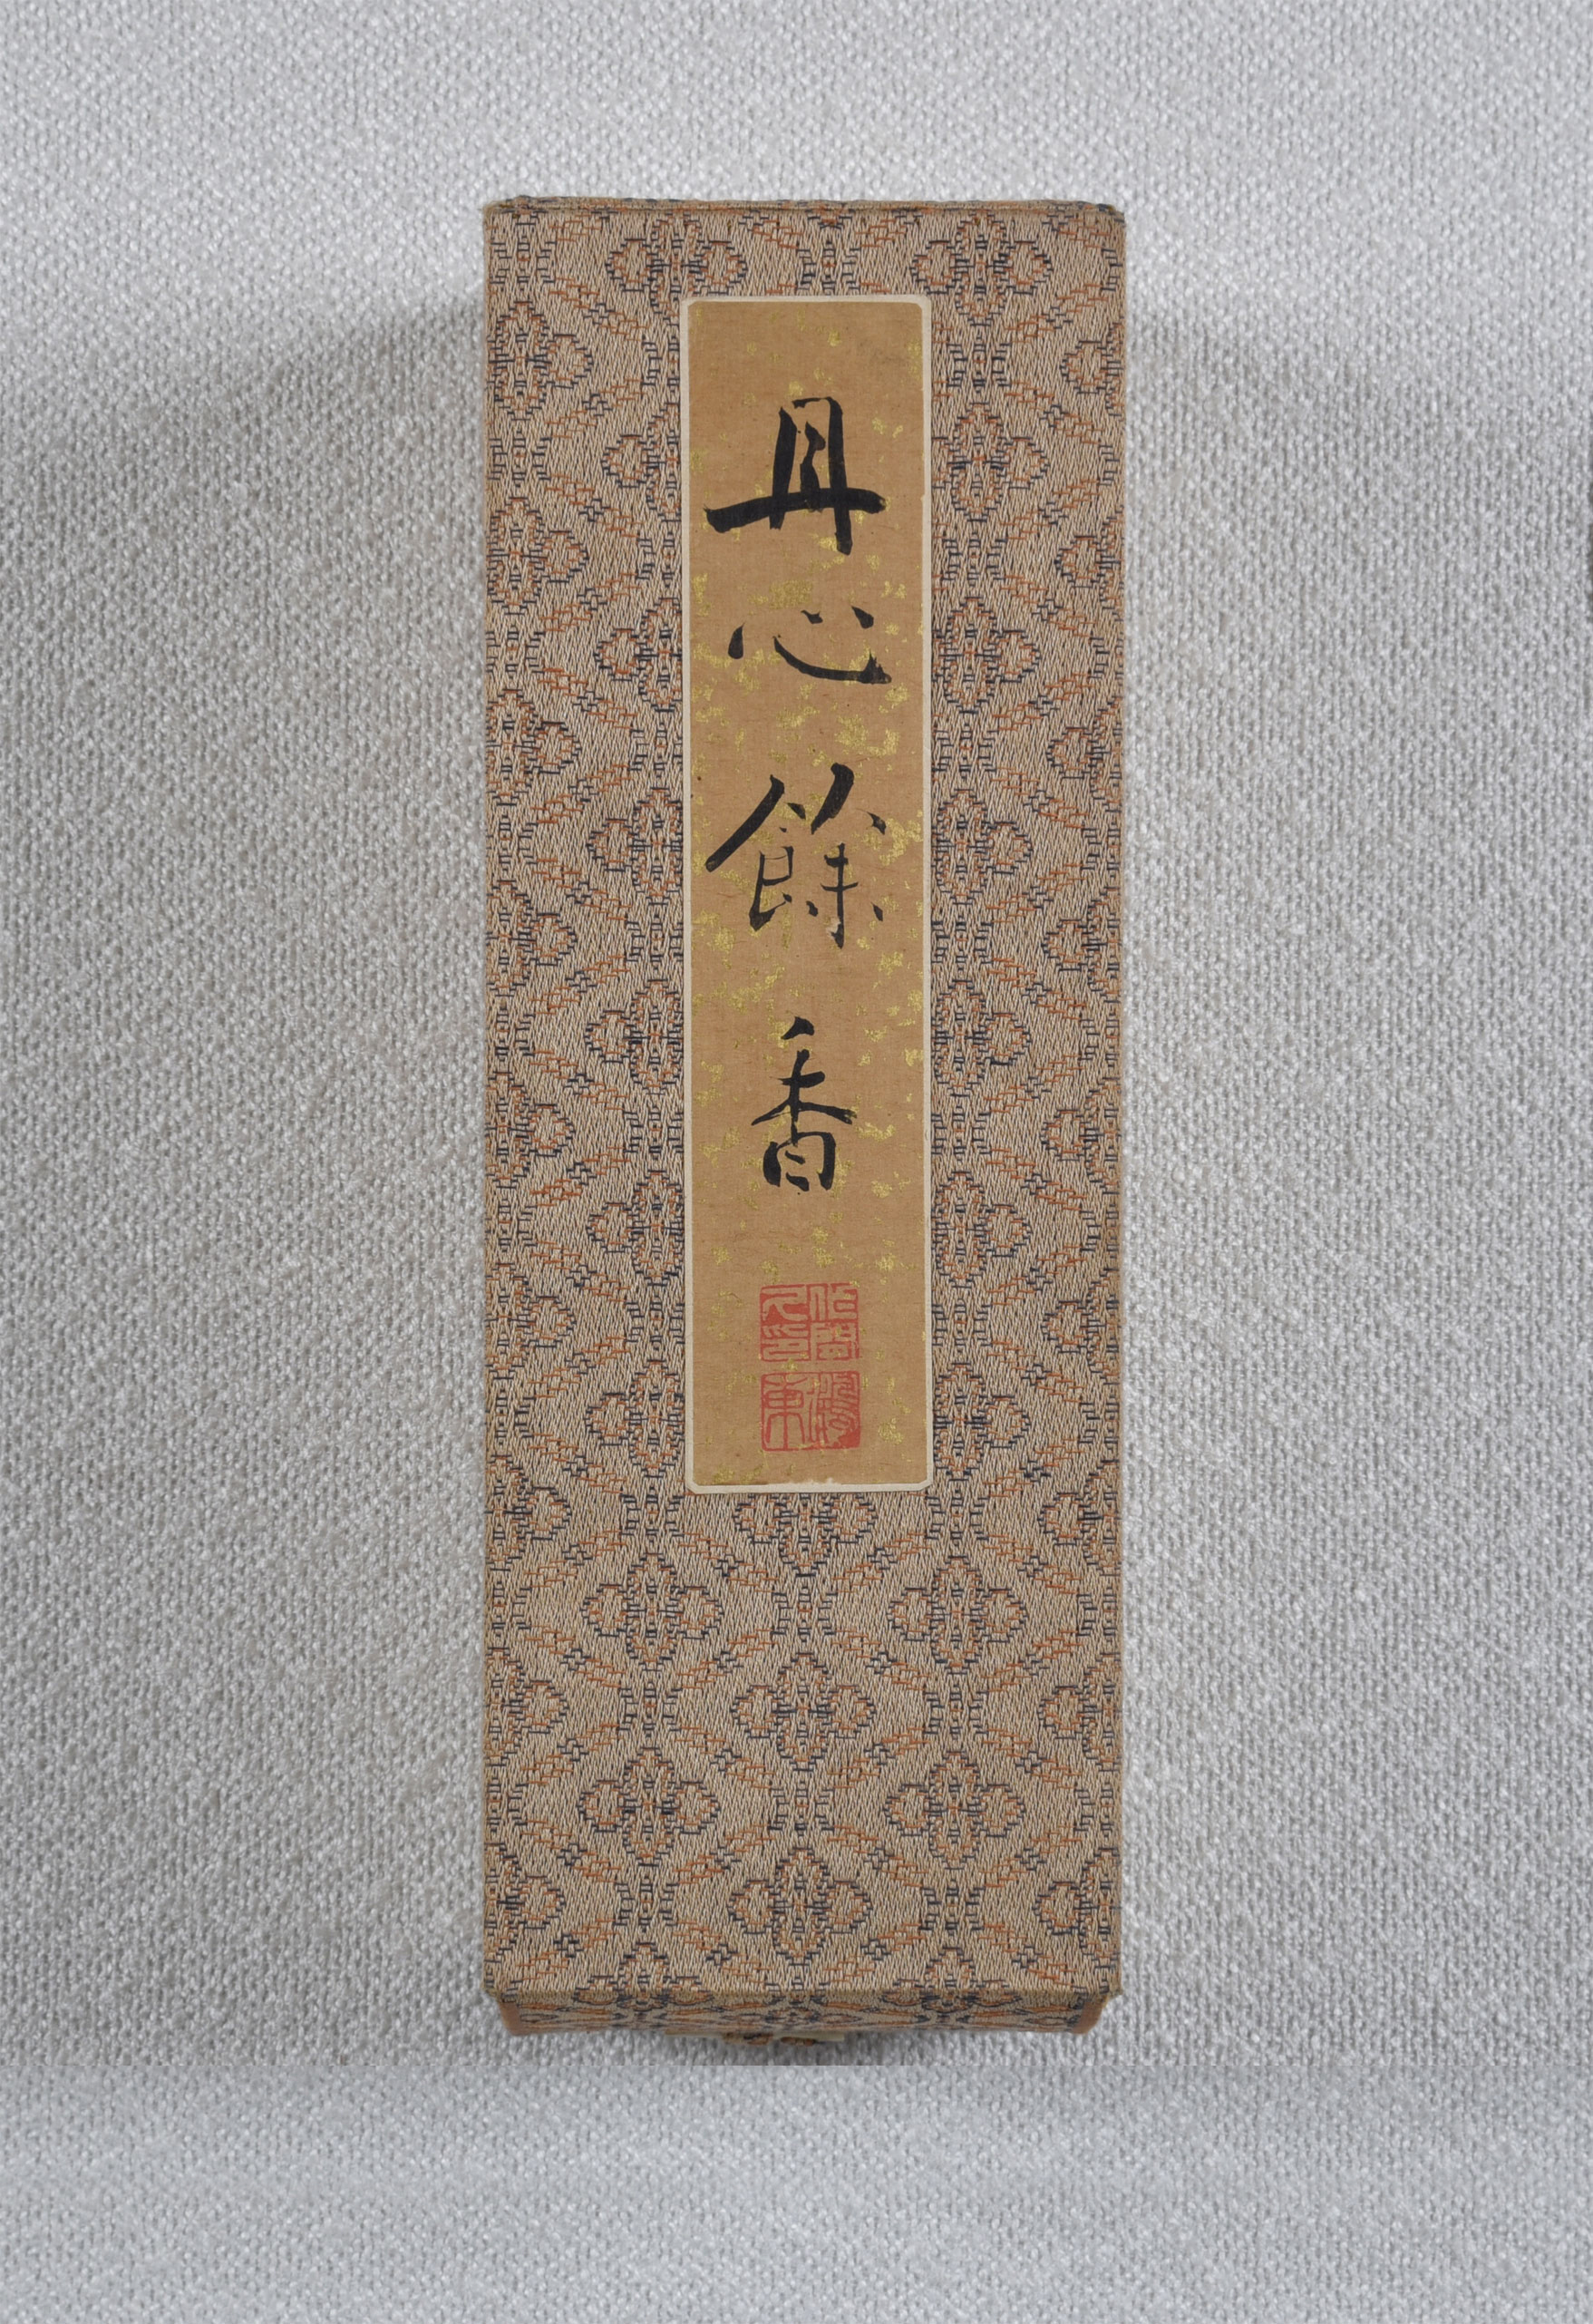 丹心餘香